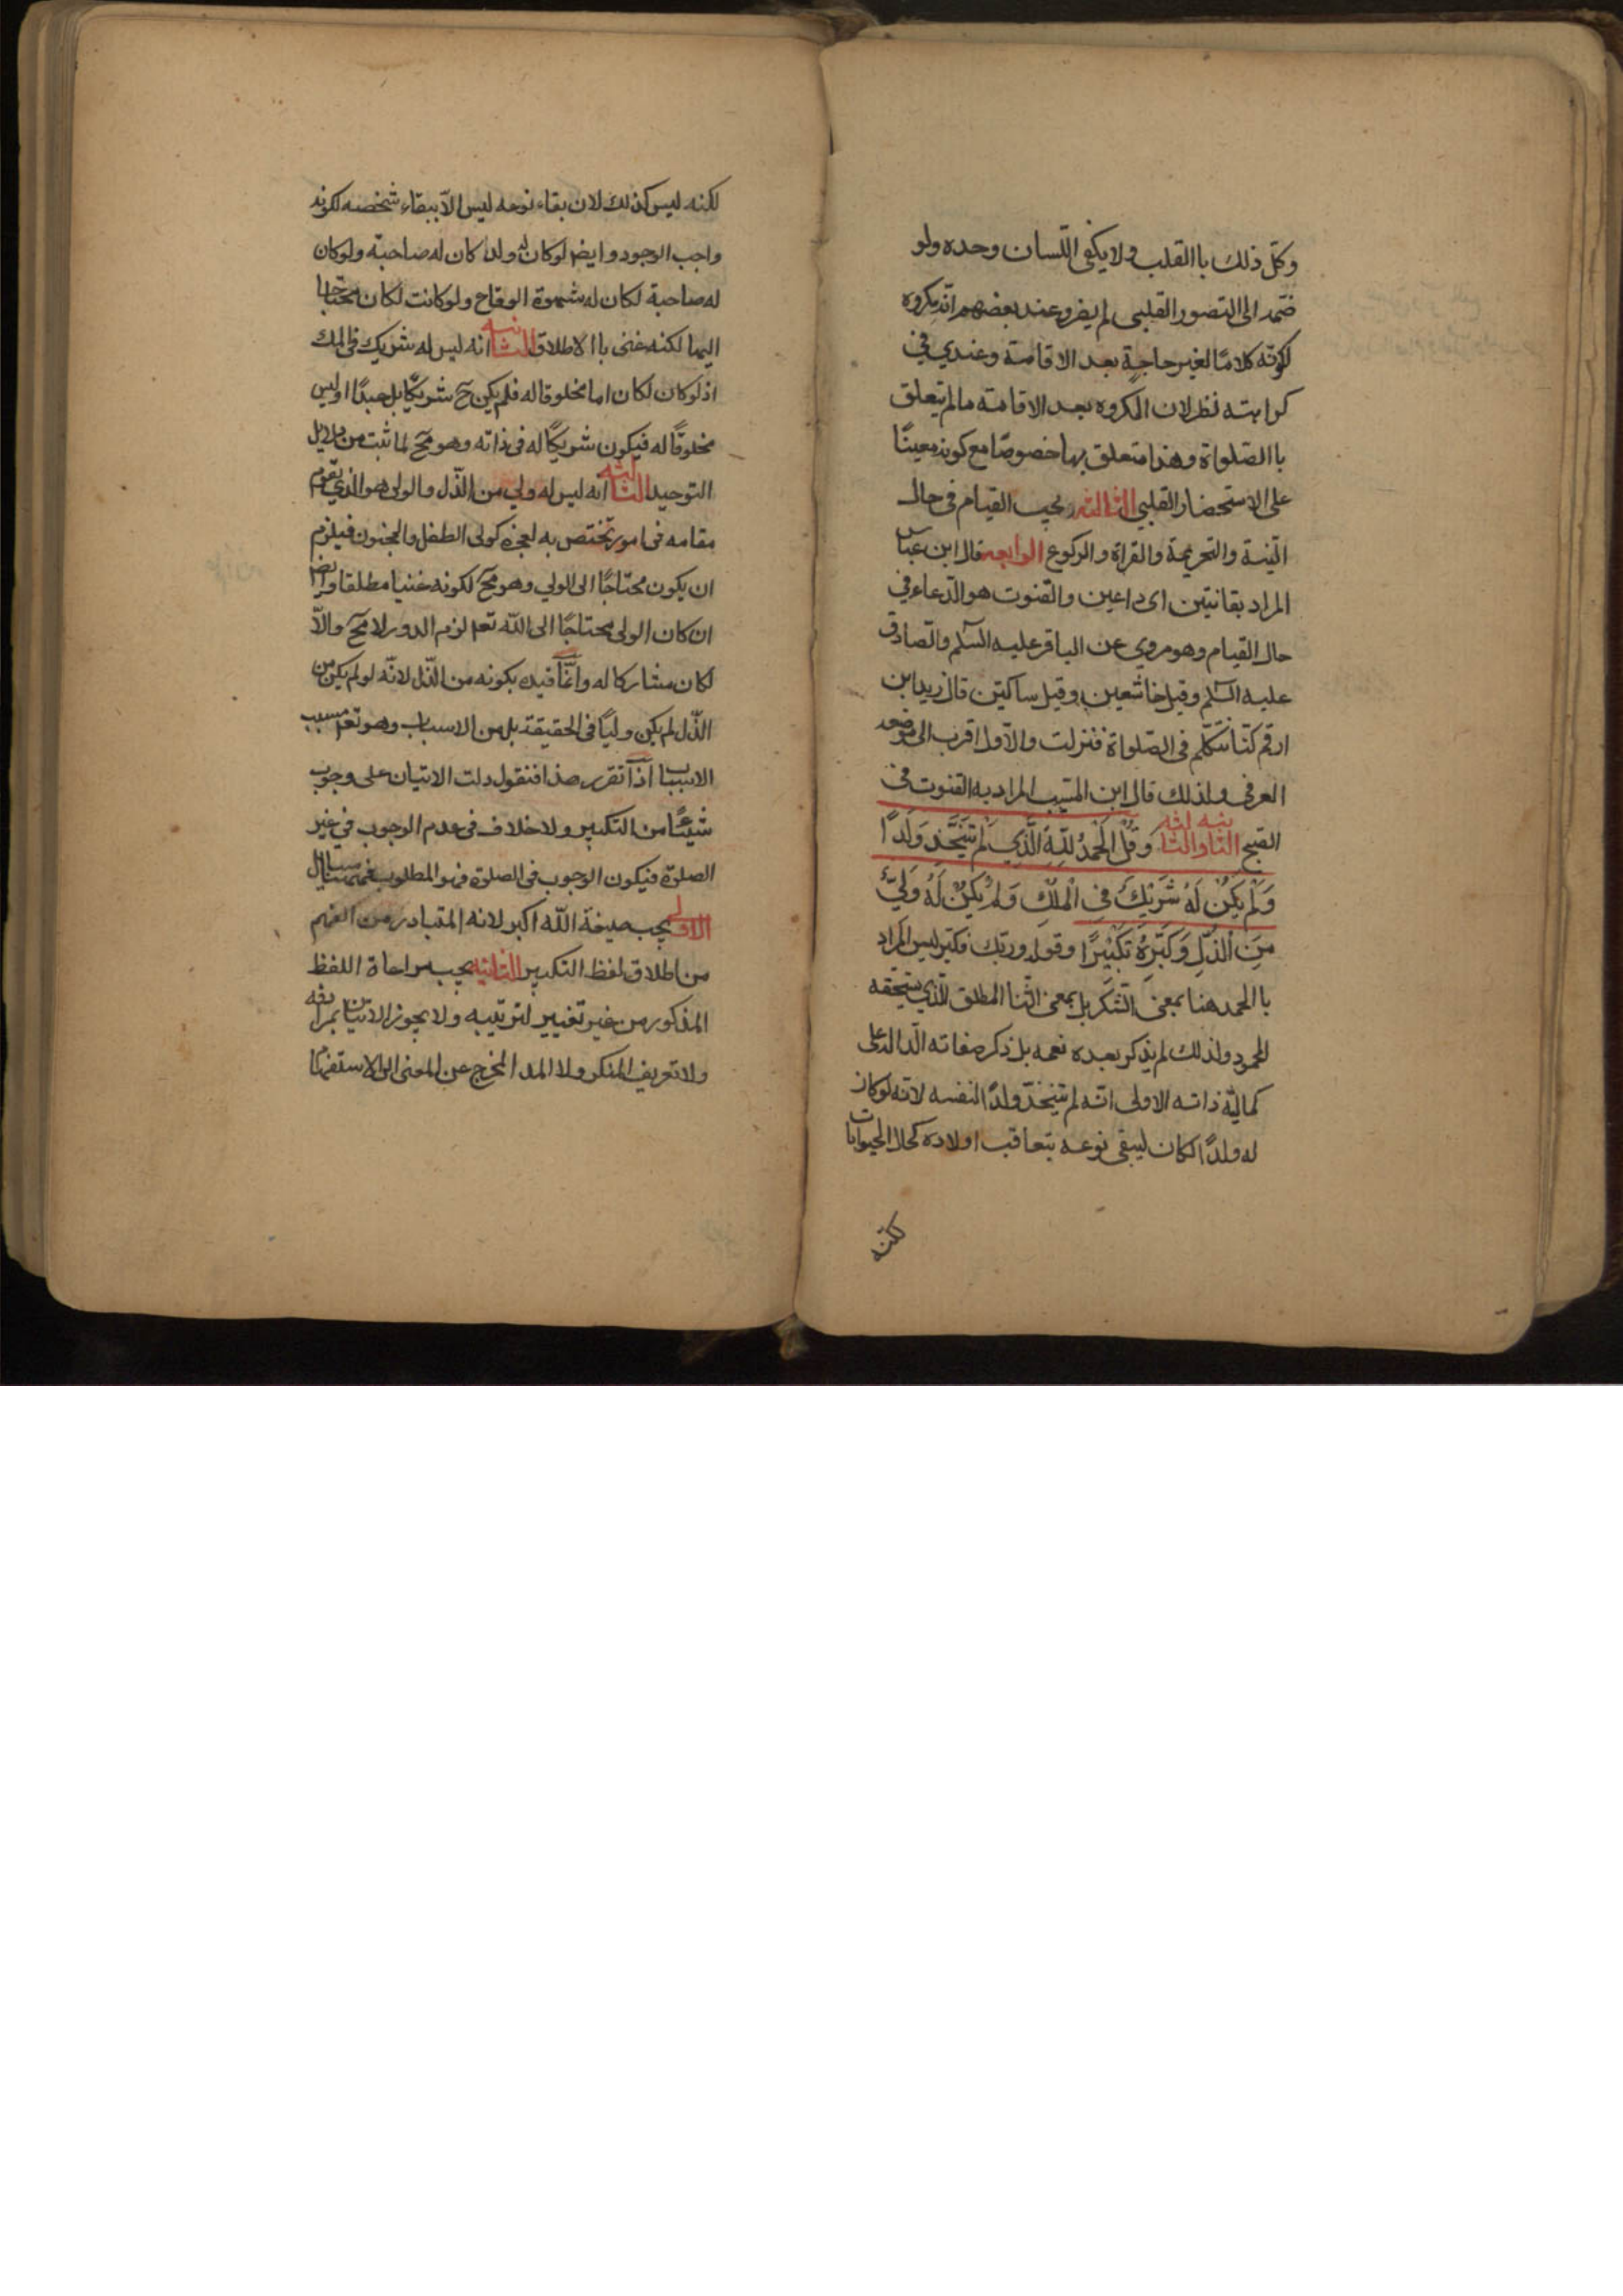 وكل ذلك باالقلب ولا يكفى اللسان وحده ولو
ضمه الى التصور القلبى لم يضر وعند بعضهم انه مكروه
لكونه كلامًا لغير حاجة بعد الاقامة وعندي في
كراهته نظر لان المكروه بعد الاقامة ما لم يتعلق
باالصلواة وهذا متعلق بها خصوصًا مع كونه معينًا
على الاستحضار القلبي الثالثه يجب القيام في حال
النية والتحريمة والقراة والركوع الرابعه قال ابن عباس
المراد بقانتين اى داعين والقنوت هو الدعاء في
حال القيام وهو مروي عن الباقر عليه السلم والصادق
عليه السلم وقيل خاشعين وقيل ساكتين قال زيد ابن
ارقم كنا نتكلم فى الصلواة فنزلت والاول اقرب الى موضعه
العرفي ولذلك قال ابن المسيب المراد به القنوت في
الصبح الثانيه والثالثه وَقُلِ الْحَمْدُ لِلّهِ الَّذِي لَمْ يَتَّخِذْ وَلَدًا
وَلَمْ يَكُنْ لَهُ شَرِيْكٌ فِي الْمُلْكِ وَلَمْ يَكُنْ لَهُ وَلِيٌّ
مِنَ الْذُّلِّ وَكَبِّرْهُ تَكْبِيْرًا وقوله وربك فكبر ليس المراد
باالحمد هنا بمعنى الشكر بل بمعنى الثنا المطلق الذي يستحقه
المحمود ولذلك لم يذكر بعده نعمه بل ذكر صفاته الدالة على
كمالية ذاته الاولى انه لم يتخذ ولدًا لنفسه لانه لو كان
له ولدًا لكان ليبقى نوعه بتعاقب اولاده كحال الحيوانات
لكنه
لكنه ليس كذلك لان بقاء نوعه ليس الا ببقاء شخصه لكونه
واجب الوجود وايضا لو كان له ولد كان له صاحبة ولو كان
له صاحبة لكان له شهوة الوقاع ولو كانت لكان محتاجا
اليها لكنه غنى باالاطلاق الثانيه انه ليس له شريك في الملك
اذ لو كان لكان اما مخلوقا له فلم يكن ح شريكًا بل عبدًا او ليس
مخلوقًا له فيكون شريكًا له فى ذاته وهو مح لما ثبت من دلايل
التوحيد الثالثه انه ليس له ولي من الذّل والولى هو الذي يقوم
مقامه فى امور تختص به لعجزه كولى الطفل والمجنون فيلزم
ان يكون محتاجًا الى الولي وهو مح لكونه غنيا مطلقا وايضا
ان كان الولى محتاجًا الى اللّه تعم لزم الدور لا مح والّا
لكان مشاركا له وانّما قيد بكونه من الذّل لانّه لو لم يكن من
الذّل لم يكن وليًا فى الحقيقة بل من الاسباب وهو تعم مسبب
الاسباب اذا تقرر هذا فنقول دلت الايتان على وجوب
شيئًا من التكبير ولا خلاف فى عدم الوجوب في غير
الصلوة فيكون الوجوب فى الصلوة وهو المطلوب
الاولى يجب صيغة اللّه اكبر لانه المتبادر من الفهم
من اطلاق لفظ التكبير الثانيه يجب مراعاة اللفظ
المذكور من غير تغيير لترتيبه ولا يجوز الاتيان بمرادفه
ولا تعريف المنكر ولا المد المخرج عن المعنى الى الاستفهام